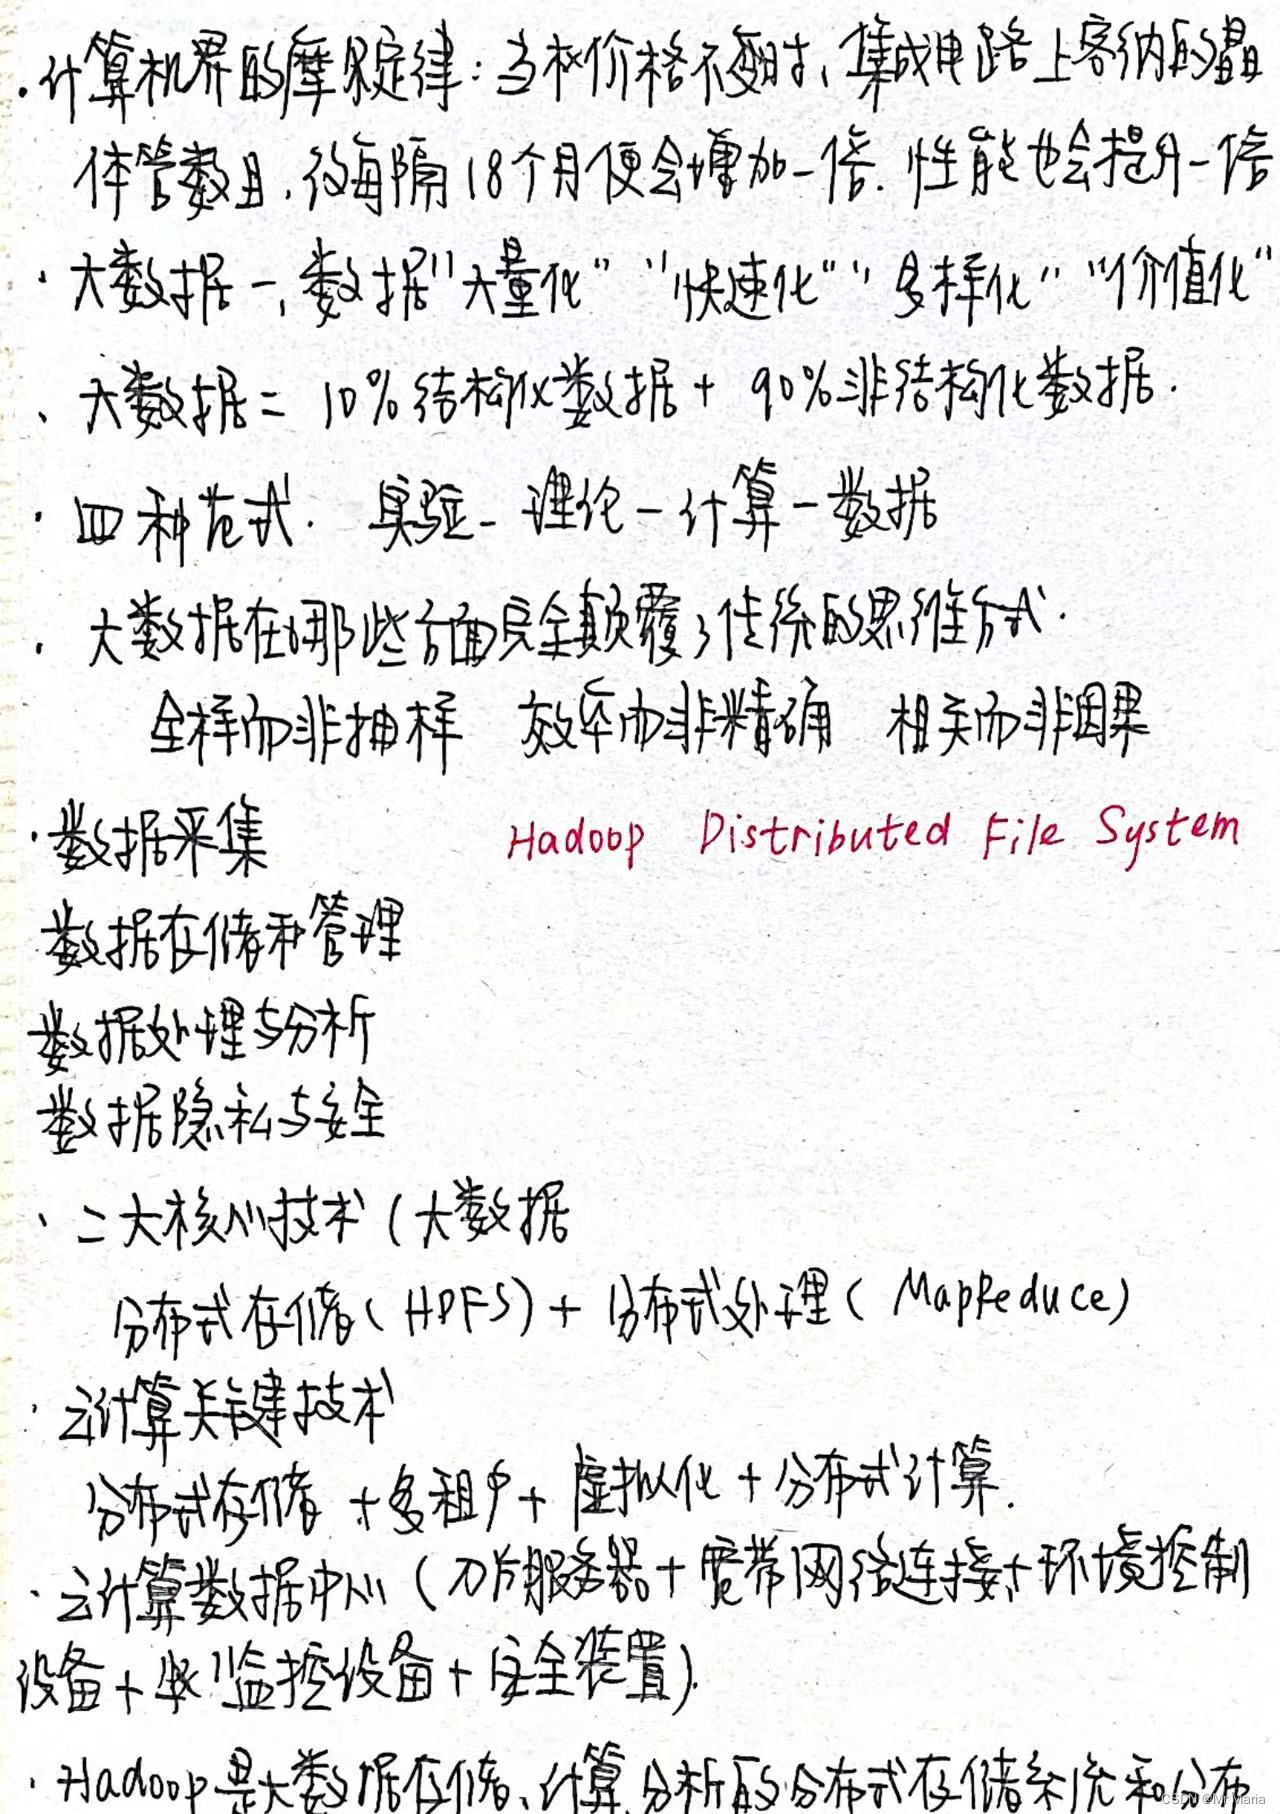 ·计算机界的摩尔定律:当价格不变时、集成电路上容纳的晶
体管数目,约每隔18个月便会增加一倍.性能也会提升一倍
·大数据一,数据"大量化""快速化""多样化""价值化"
、大数据= 10%结构化数据+ 90%非结构化数据.
·四种范式.实验-理论-计算-数据
·大数据在哪些方面完全颠覆了传统的思维方式.
全样而非抽样 效率而非精确 相关而非因果
·数据采集 Hadoop Distributed File System
数据存储和管理
数据处理与分析
数据隐私与安全
、二大核心技术(大数据
分布式存储(HDFS)+分布式处理(MapReduce)
·云计算关键技术
分布式存储+多租户+虚拟化+分布式计算.
·云计算数据中心(刀片服务器+宽带网络连接+环境控制
设备+监控设备+安全装置).
·Hadoop是大数据存储、计算,分析的分布式存储系统和分布
CSDN @Mr Maria